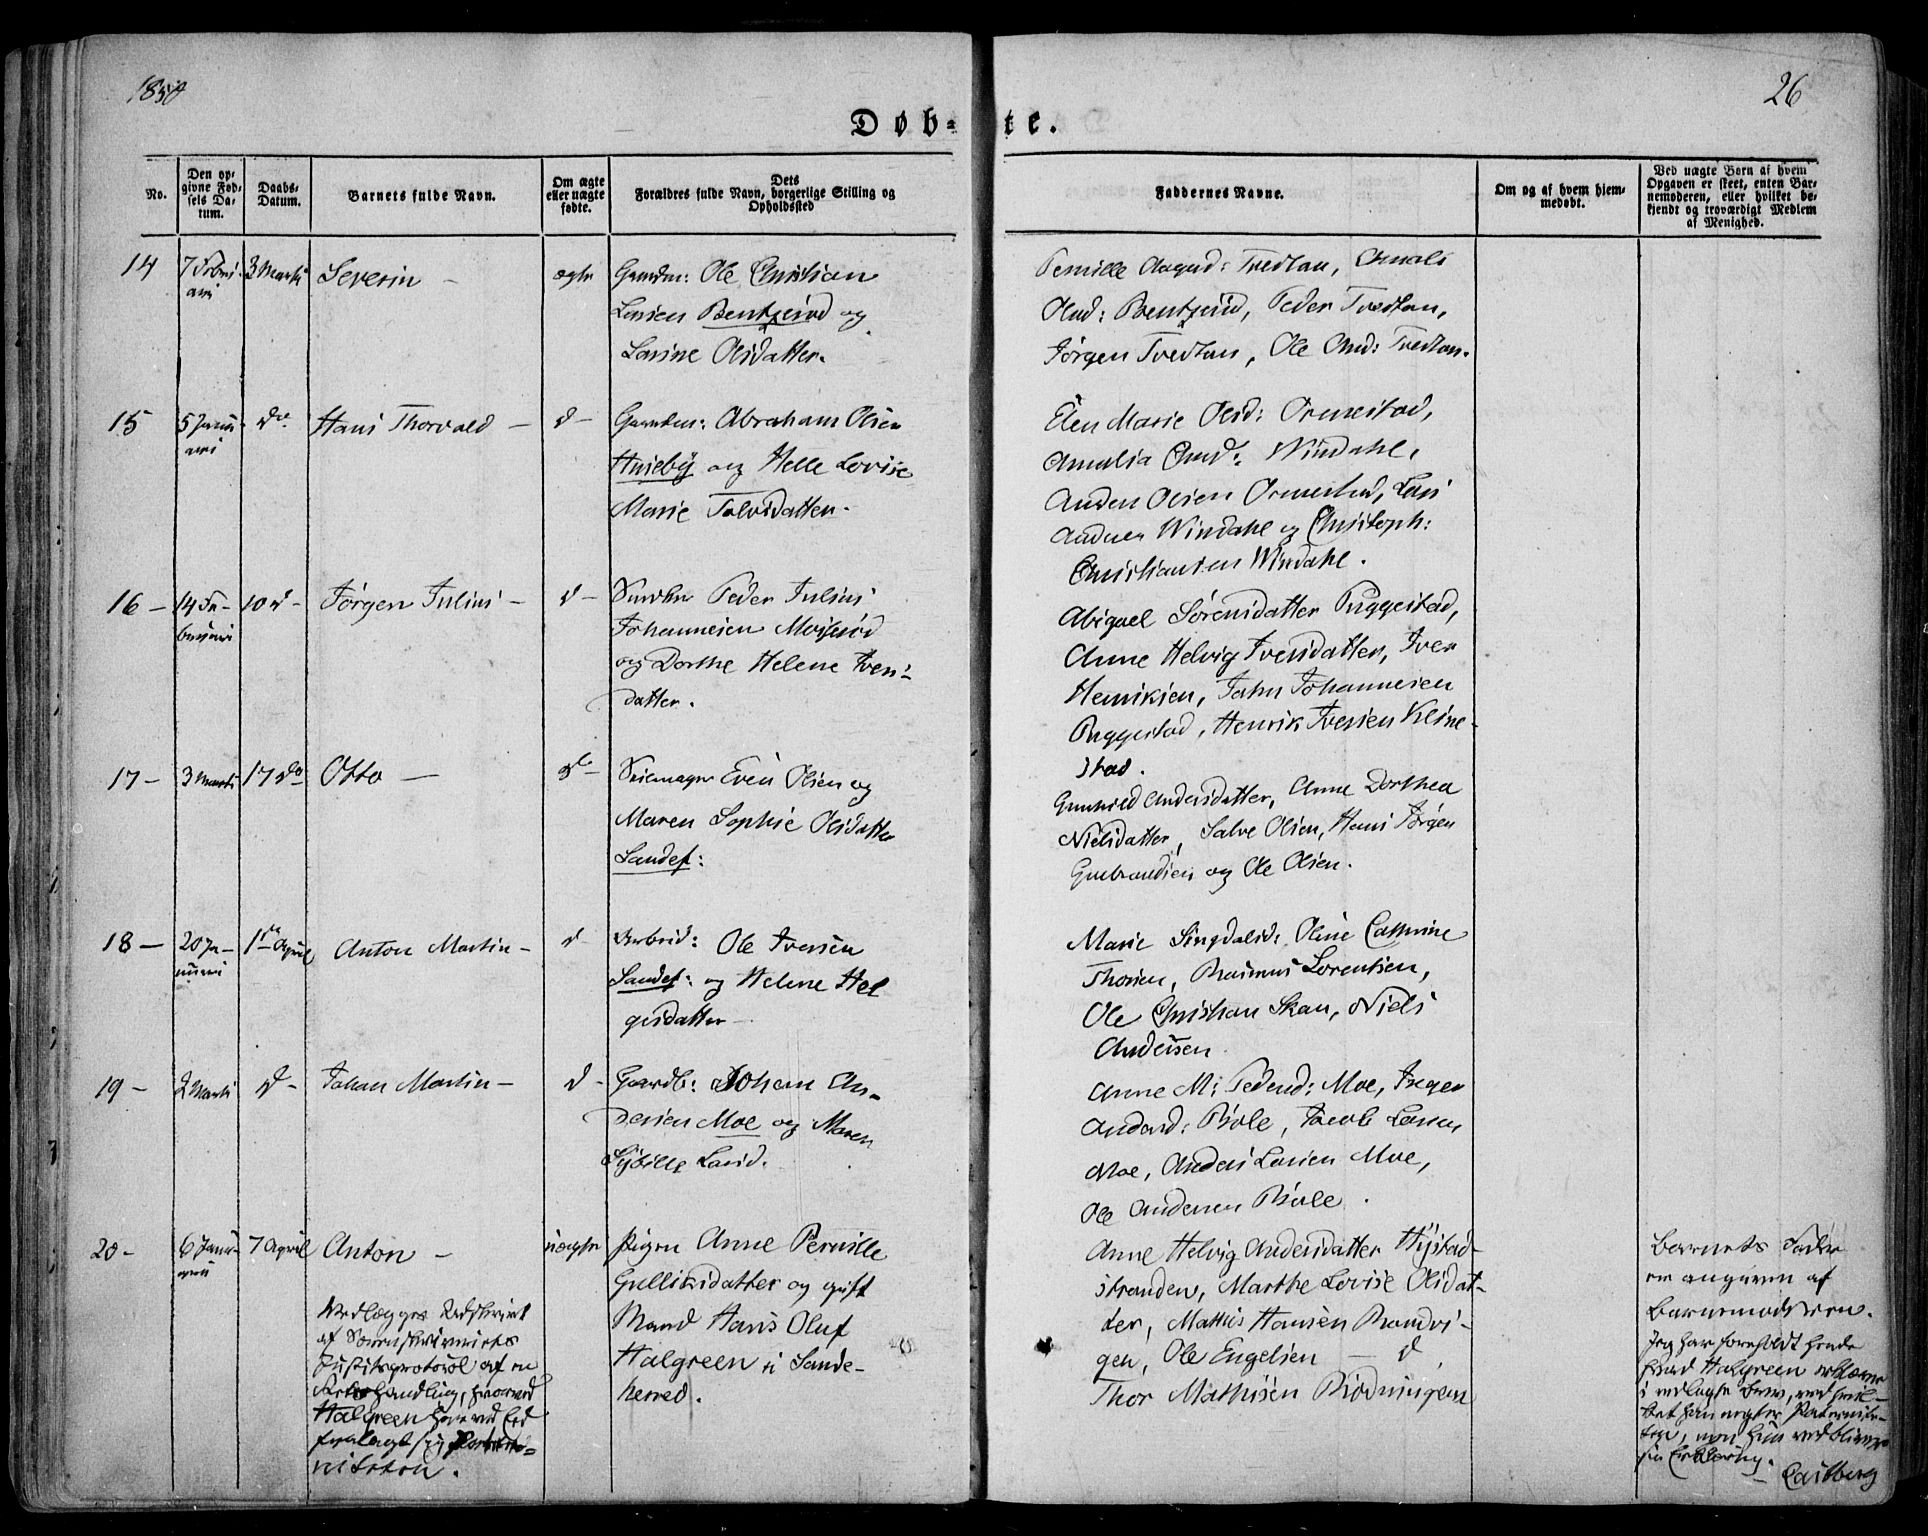 1850
26
Døb-
te.
No.
Den op-
givne Fød-
sels Da-
tum.
Daabs-
Datum.
Barnets fulde Navn.
Om ægte
eller uægte
fødte.
Dets
Forældres fulde Navn, borgerlige Stilling og
Opholdssted
Faddernes Navne.
Om og af hvem hjem-
medøbt.
Ved uægte Børn af hvem
Opgaven er skeet, enten Bar-
nemoderen, eller hvilket be-
kjendt og troværdigt Medlem
af Menighed.
14
7 Febru-
ari
3 Marts
Severin –
ægte
Gaardm: Ole Christian
Larsen Bentzerød og
Lovine Olsdatter.
Pernille Aagesd: Tvedtan,
Olsd: Bentzerød, Peder Tvedtan,
Jørgen Tvedtan, Ole And: Tvedtan.
15
5 Janu
ari
do
Hans Thorvald –
d –
Gaardm: Abraham Olsen
Huseby og Helle Lovise
Marie Tolvsdatter.
Elen Marie Olsd: Ormestad,
Amalia And: Windahl,
Anders Olsen Ormestad, Lars
Andersen Windahl og Christoph:
Christiansen Windahl.
16 –
14 Fe-
bruari
10 d –
Jørgen Julius –
d –
Peder Julius
Johannesen Moserød
og Dorthe Helene Ivers-
datter.
Abigael Sørensdatter Puggestad,
Anne Helvig Iversdatter, Iver
Henriksen, John Johannesen
Puggestad, Henrik Iversen Kline-
stad.
17 –
3 Marts
17 do
Otto –
do –
Seilmager Even Olsen og
Maren Sophie Olsdatter
Sandef:
Gunhild Andersdatter, Anne Dorthea
Nielsdatter, Salve Olsen, Hans Jørgen
Gulbrandsen og Ole Olsen.
18 –
20 Ja-
nuari
1ste April
Anton Martin –
d –
Arbeid: Ole Iversen
Sandef: og Helene Hel
gesdatter –
Marie Oline Cathrine
Thorsen, Rasmus Lorentsen,
Ole Christian Skau, Niels
Andersen
19 –
2 Marts
d –
Johan Martin –
d –
Gaardb: Johan An-
dersen Moe og Maren
Sybille Larsd.
Anne M: Pedersd: Moe, Inger
Andersd: Virle, Jacob Larsen
Moe, Anders Larsen Moe,
Ole Andersen Virle.
20 –
6 Janu-
ari
7 April
Anton –
uægte
Pigen Anne Pernille
Gulliksdatter og gift
Mand Hans Oluf
Halgreen i Sande-
herred.
Anne Helvig Andersdatter Hystad-
stranden, Marthe Lovise Olsdat-
ter, Mathis Hansen Brandvi-
gen, Ole Engelsen – d
Thor Mathisen Rødningen
Vedlægges Udskrivt
af Sorenskriveriets
Justitsprotocol af en
Retshandling, hvorved
Halgreen har ved Eed
fralagt sig Pater-
niteten.
Barnets Fader
er angiven af
Barnemoderen.
Jeg har foreholdt hende
hvad Halgreen erklærer
i vedlagte brev, ved hvil-
ket han negter Paternite-
ten, men hun vedbliver
sin Erklæring.
Castberg